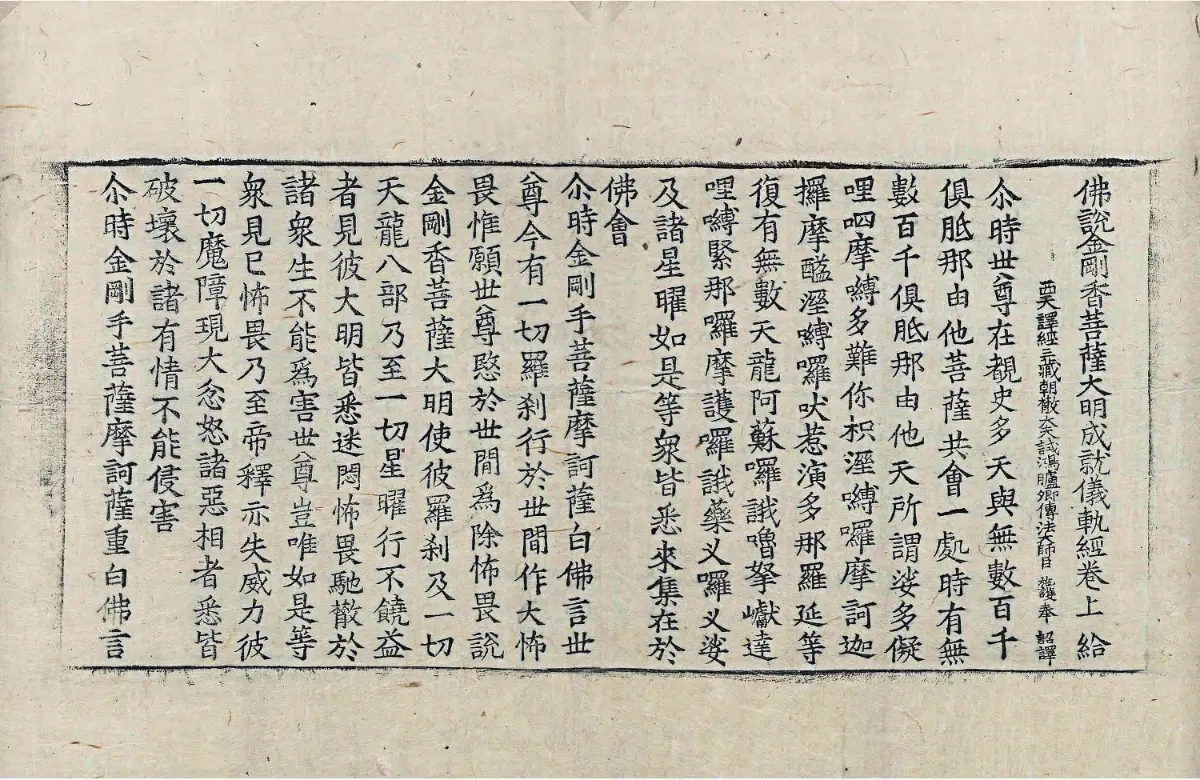 佛說金剛香菩薩大明成就儀軌經卷上 給
西天譯經三藏朝散大夫試鴻臚卿傳法大師臣 施護 奉 詔譯
尒時世尊在覩史多天與無數百千
俱胝那由他菩薩共會一處時有無
數百千俱胝那由他天所謂娑多儗
哩呬摩嚩多難你枳溼嚩囉摩訶迦
攞摩醯溼嚩囉吠惹演多那羅延等
復有無數天龍阿蘇囉誐嚕拏巘達
哩嚩緊那囉摩護囉誐藥叉囉叉娑
及諸星曜如是等衆皆悉來集在於
佛會
尒時金剛手菩薩摩訶薩白佛言世
尊今有一切羅刹行於世間作大怖
畏惟願世尊愍於世間爲除怖畏說
金剛香菩薩大明使彼羅刹及一切
天龍八部乃至一切星曜行不饒益
者見彼大明皆悉迷悶怖畏馳㪚於
諸衆生不能爲害世尊豈唯如是等
衆見已怖畏乃至帝釋亦失威力彼
一切魔障現大忿怒諸惡相者悉皆
破壞於諸有情不能侵害
尒時金剛手菩薩摩訶薩重白佛言